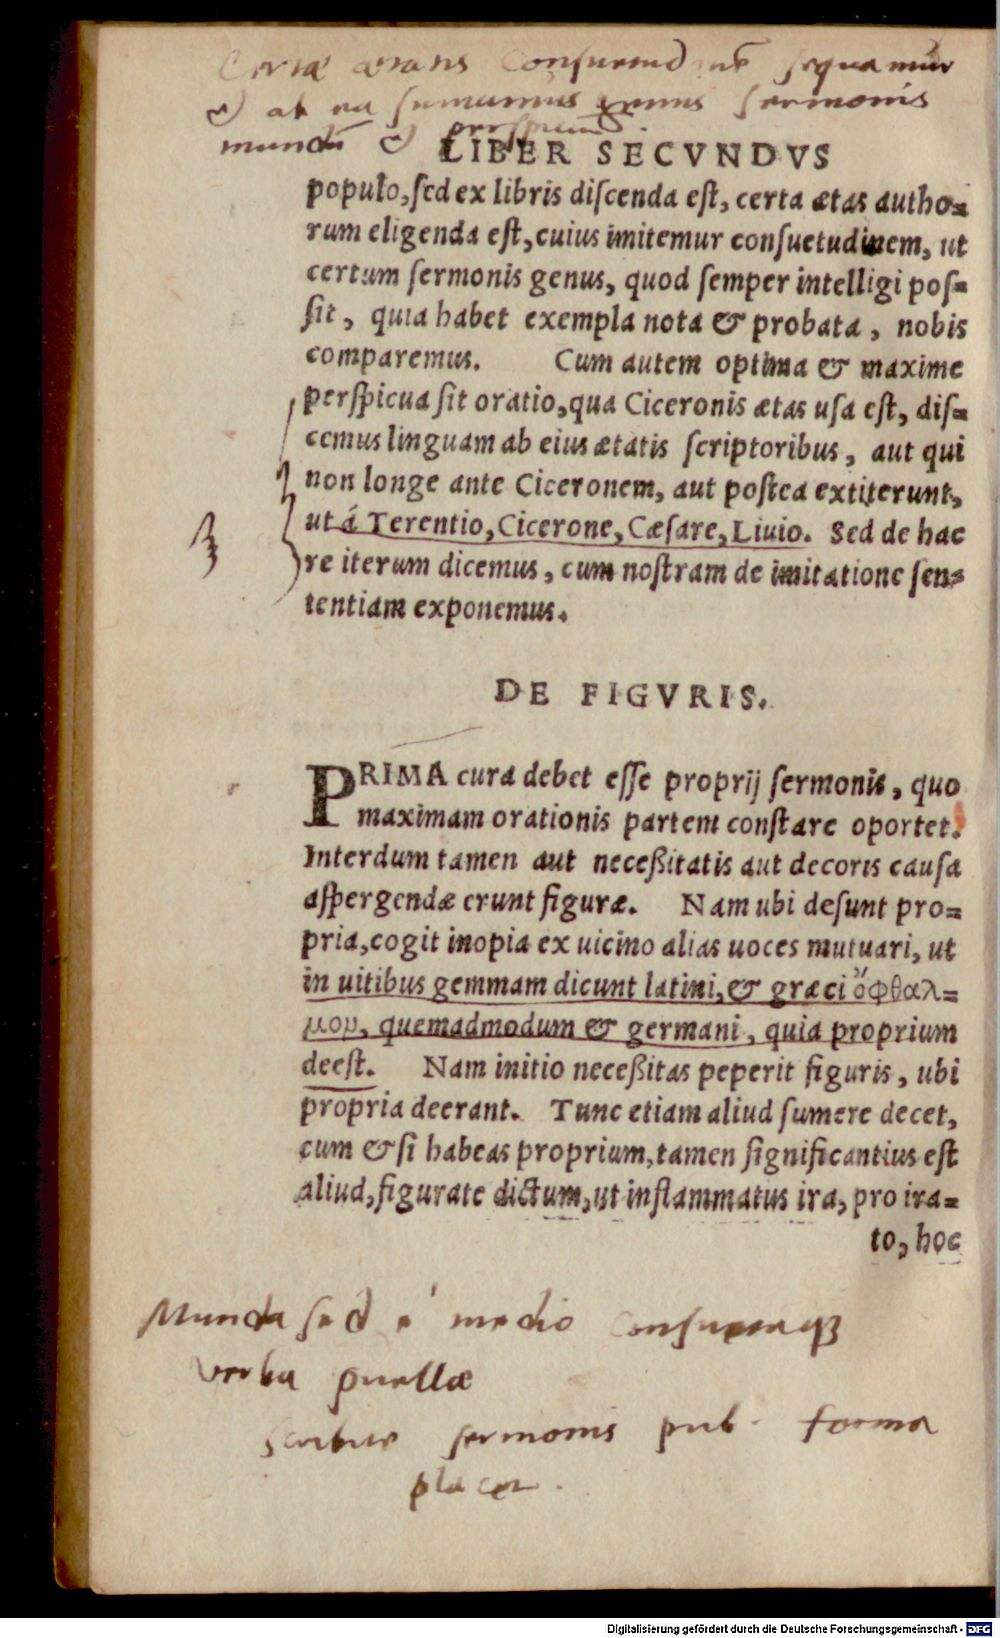 Certæ ætatis consuetudinē sequamur
& ab ea sumamus genus sermonis
mundū & perspicuū.
LIBER SECVNDVS
populo, sed ex libris discenda est, certa ætas autho-
rum eligenda est, cuius imitemur consuetudinem, ut
certum sermonis genus, quod semper intelligi pos-
sit, quia habet exempla nota & probata, nobis
comparemus. Cum autem optima & maxime
perspicua sit oratio, qua Ciceronis ætas usa est, dis-
cemus linguam ab eius ætatis scriptoribus, aut qui
non longe ante Ciceronem, aut postea extiterunt,
ut á Terentio, Cicerone, Cæsare, Liuio. Sed de hac
re iterum dicemus, cum nostram de imitatione sen-
tentiam exponemus.
DE FIGVRIS.
PRIMA cura debet esse proprij sermonis, quo
maximam orationis partem constare oportet.
Interdum tamen aut neceßitatis aut decoris causa
aspergendæ erunt figuræ. Nam ubi desunt pro-
pria, cogit inopia ex uicino alias uoces mutuari, ut
in uitibus gemmam dicunt latini, & græci ὄφθαλ-
μον, quemadmodum & germani, quia proprium
deest. Nam initio neceßitas peperit figuris, ubi
propria deerant. Tunc etiam aliud sumere decet,
cum & si habeas proprium, tamen significantius est
aliud, figurate dictum, ut inflammatus ira, pro ira-
to, hoc
Munda sed é medio consuetaq3
verba puellæ
scribite sermonis pub. forma
placet.
Digitalisierung gefördert durch die Deutsche Forschungsgemeinschaft - DFG